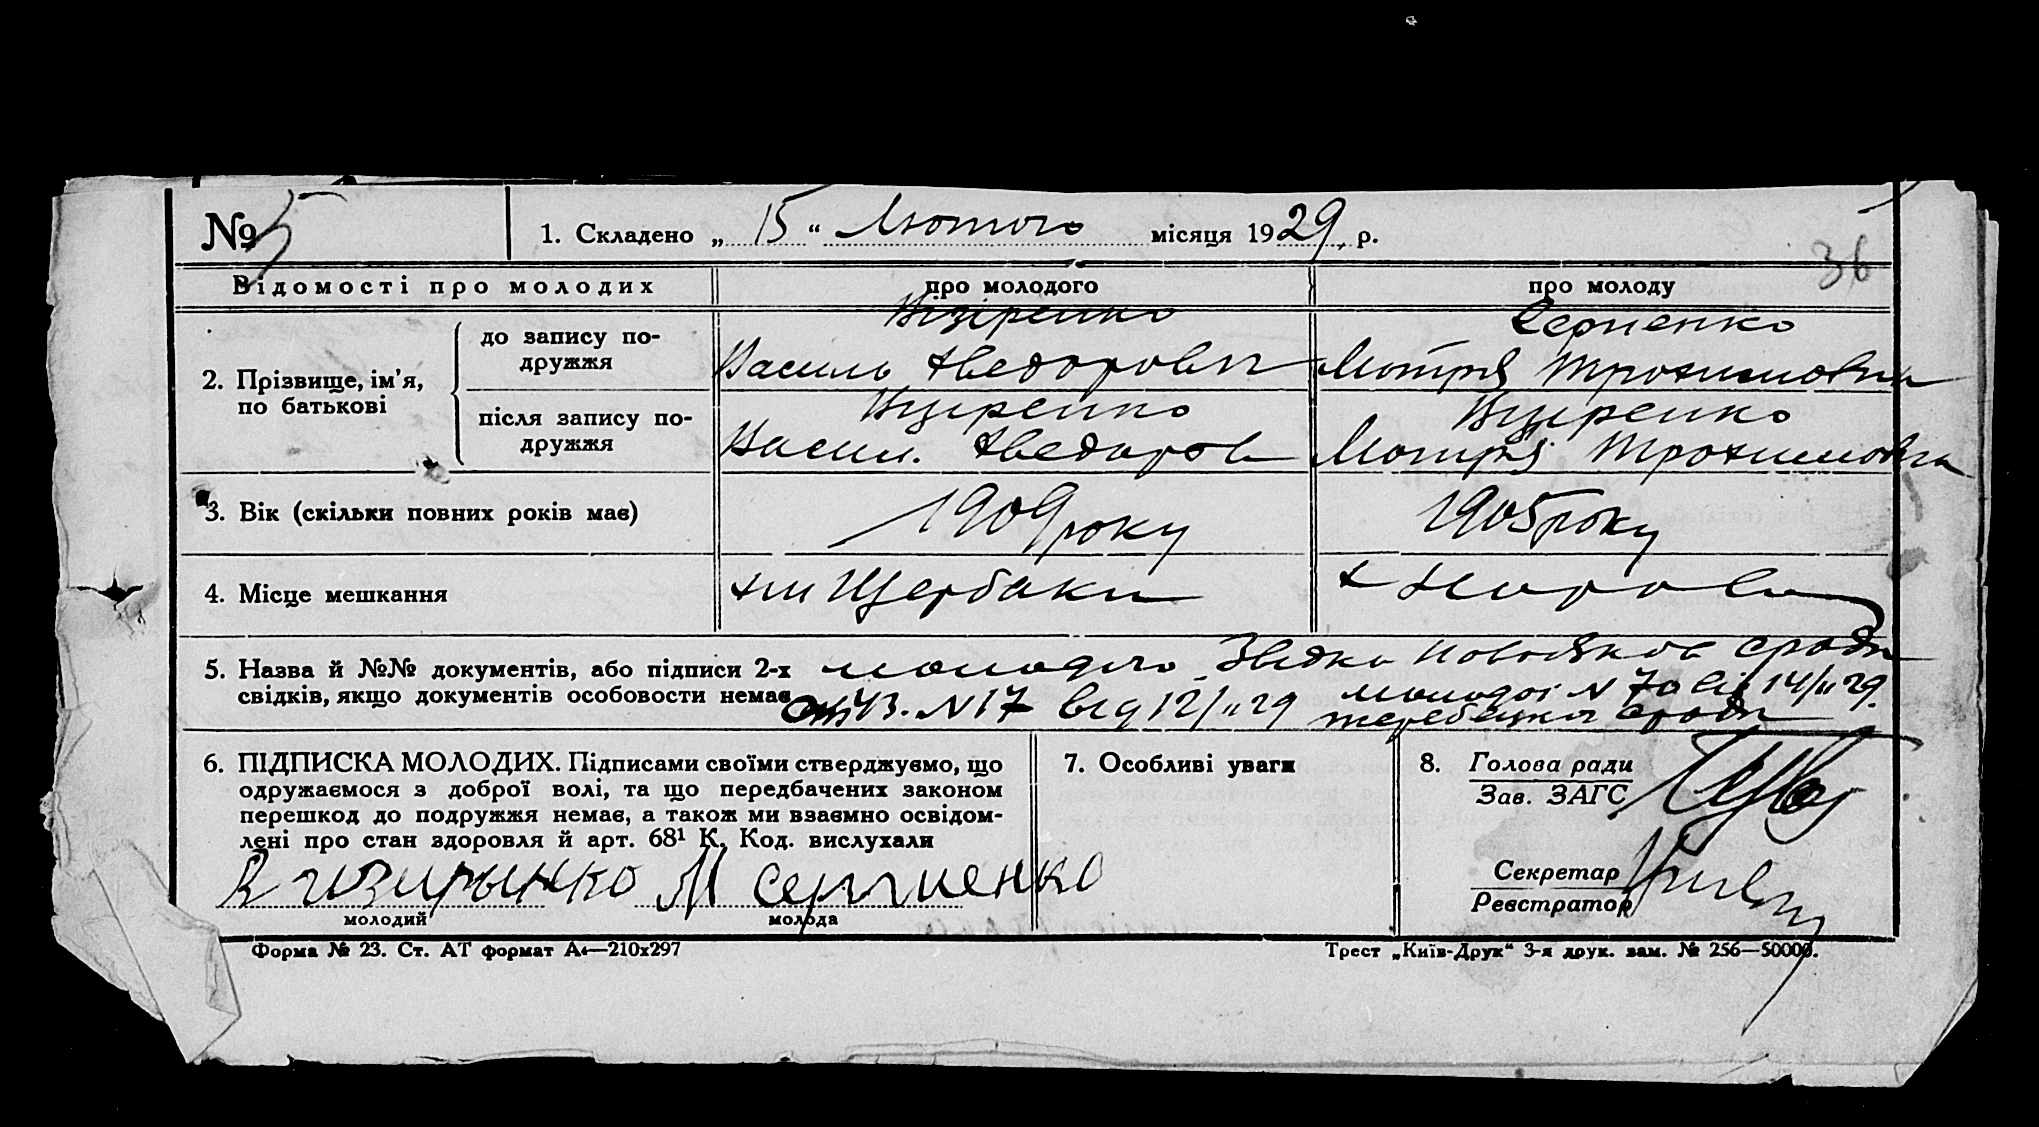 № 5
1. Складено „ 15 “ Лютого місяця 1929 р.
36
Відомості про молодих
про молодого
про молоду
2. Прізвище, ім’я, по батькові
до запису по-
дружжя
Василь Хведорович
Сергиенко
Мотря Трохимовна
після запису по-
дружжя
Василь Хведоров
Мотря Трохимовна
3. Вік (скільки повних років має)
1909 року
1905 року
4. Місце мешкання
хут Щербаки
5. Назва й №№ документів, або підписи 2-х
свідків, якщо документів особовости немає
молодого
сради
N 17 від 12/II 29
молодої N 70 від 14/II 29.
сради
6. ПІДПИСКА МОЛОДИХ. Підписами своїми стверджуємо, що
одружаємося з доброї волі, та що передбачених законом
перешкод до подружжя немає, а також ми взаємно освідом-
лені про стан здоровля й арт. 68¹ К. Код. вислухали
М Сергиенко
молодий
молода
7. Особливі уваги
8. Голова ради
Зав. ЗАГС
Секретар
Реєстратор
Форма № 23. Ст. АТ формат А₄—210х297
Трест „Київ-Друк“ 3-я друк. зам. № 256—50000.